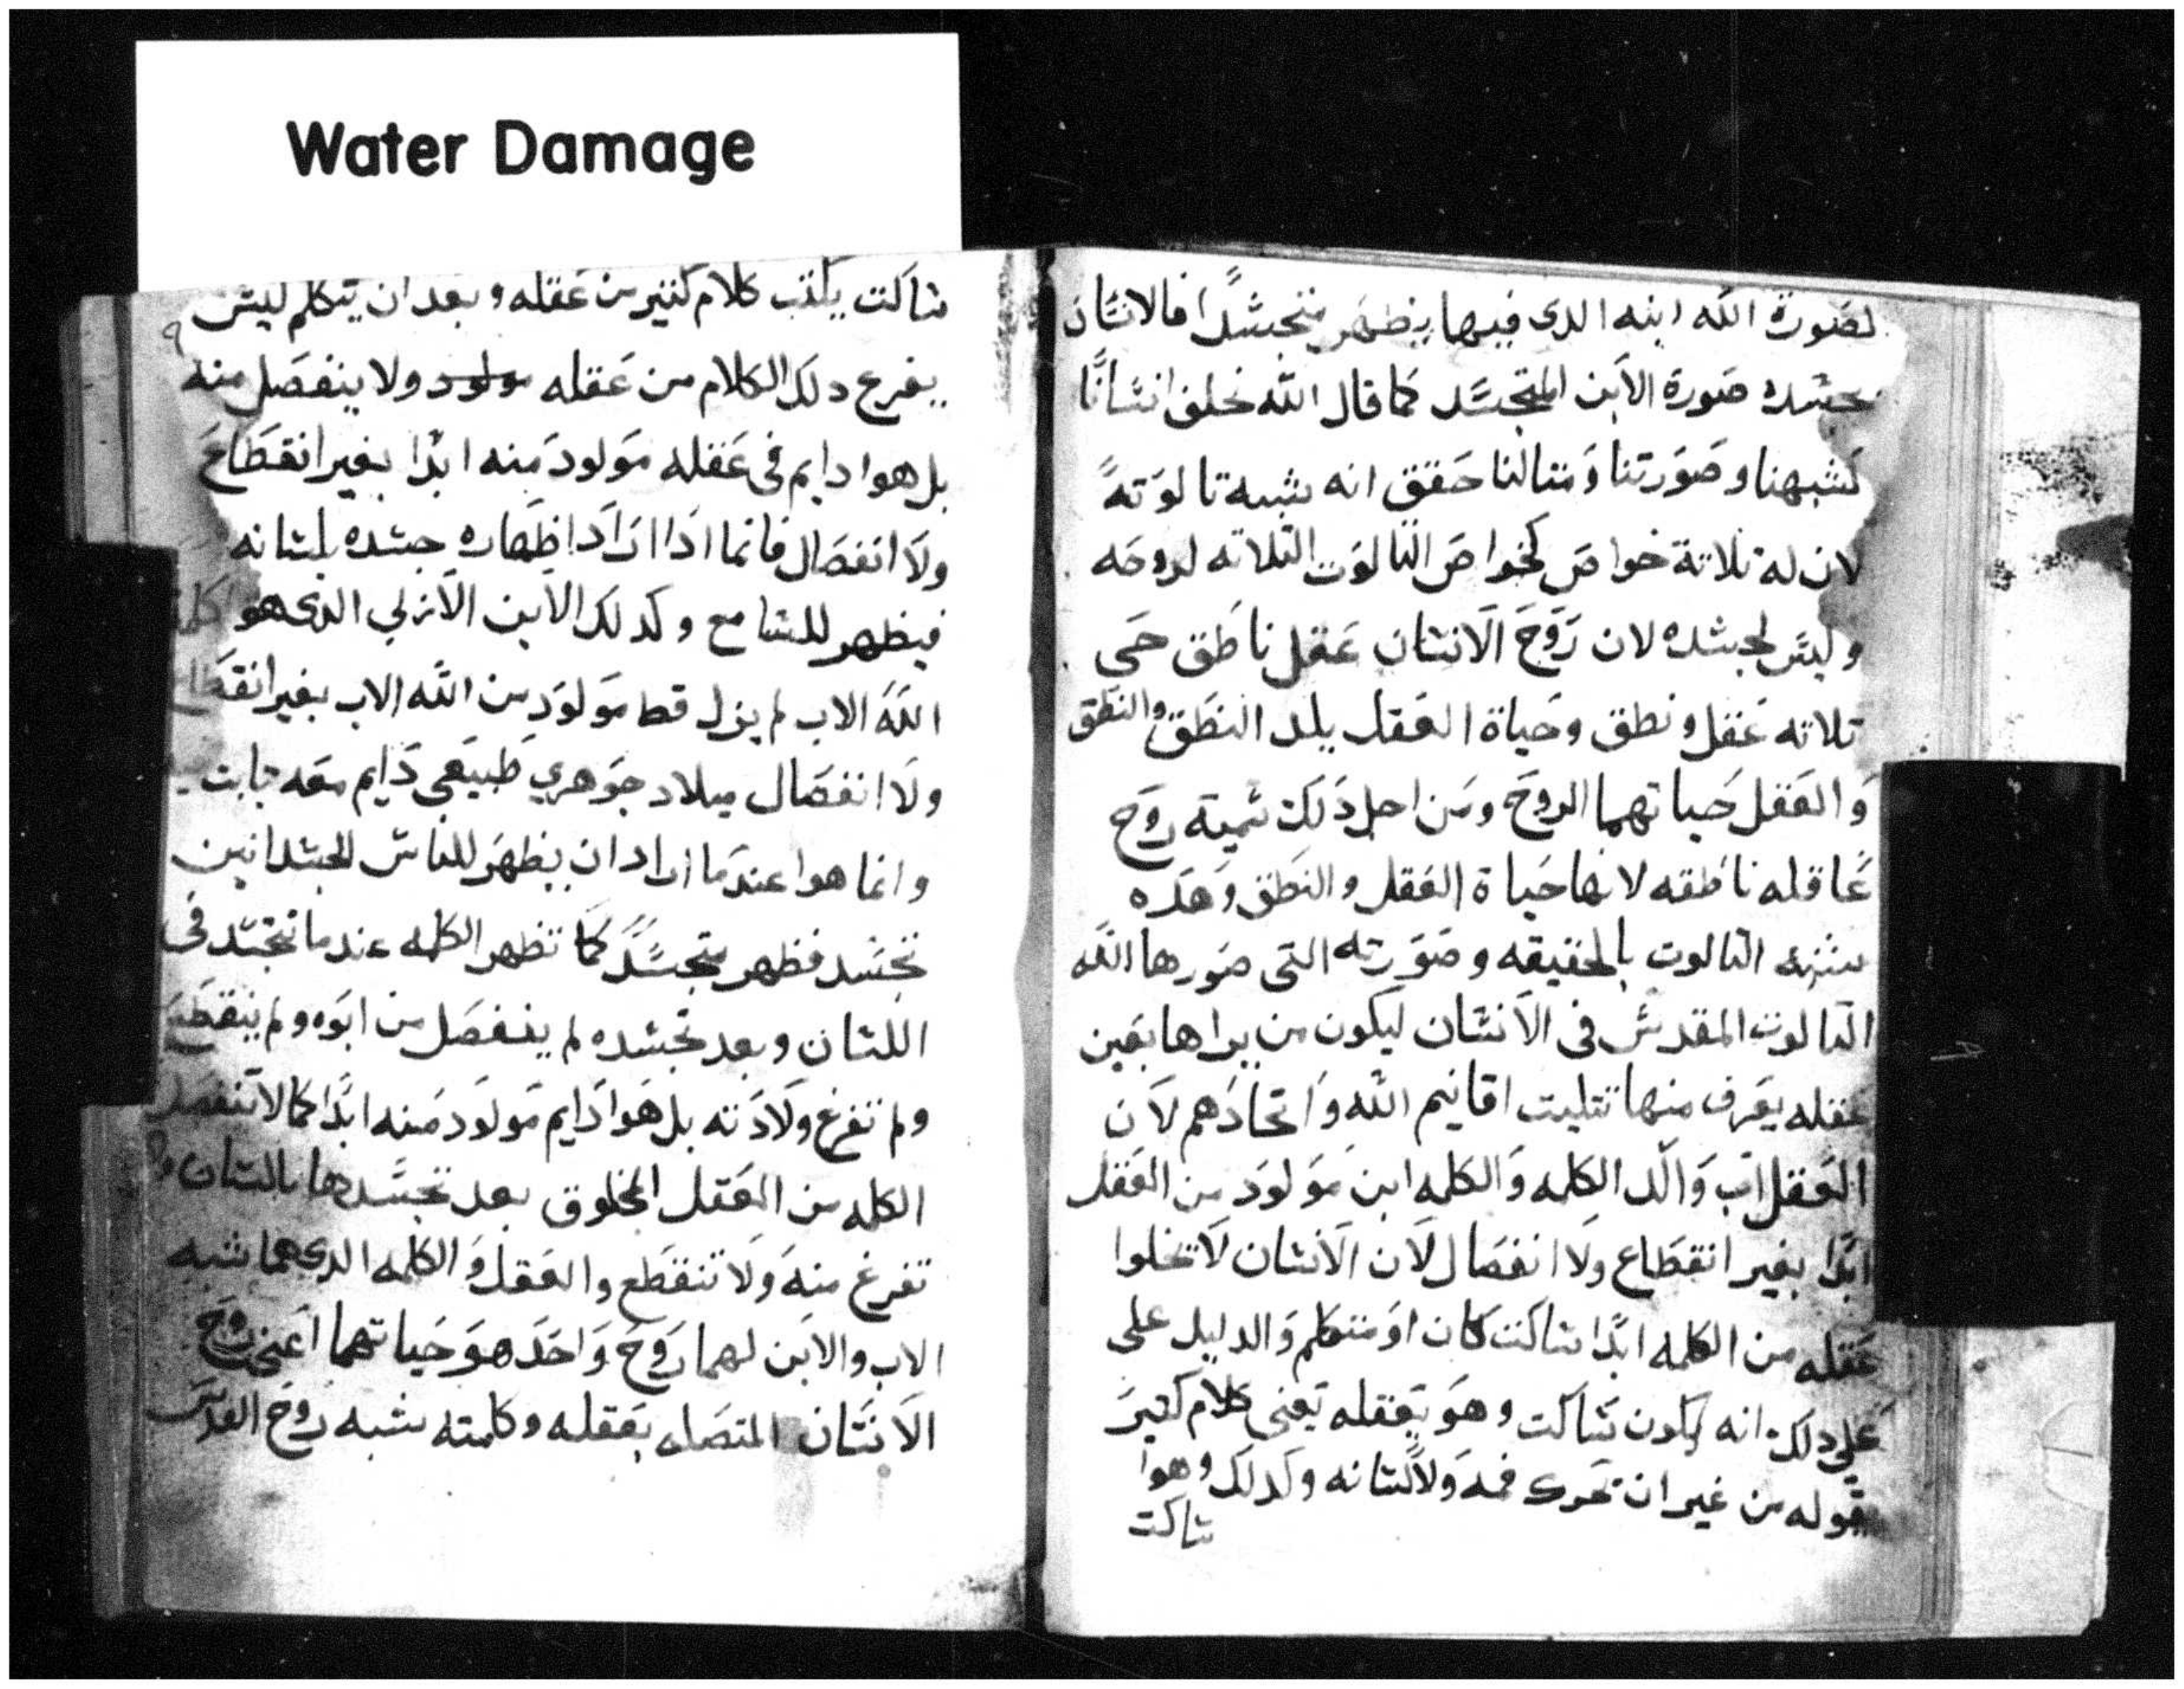 Water Damage
لصورة الله ابنه الدى فيها يظهر متجسدًا فالانسان
بجسده صورة الابن المتجسد كما قال الله نخلق انسانًا
كشبهنا وصورتنا ومتالنا حقق انه بشبه تالوته
لان له تلاتة خواص كخواص التالوت التلاته لروحه
وليس لجسده لان روح الانسان عقل ناطق حى
تلاته عقل ونطق وحياة العقل يلد النطق والنطق
والعقل حياتهما الروح ومن اجل دلك سميته روح
عاقله ناطقه لانها حياة العقل والنطق وهده
التالوت بالحقيقه وصورته التى صورها الله
التالوت المقدس فى الانسان ليكون من يراها بعين
عقله يعرف منها تتليت اقانيم الله واتحادهم لان
العقل اب والد الكلمه والكلمه ابن مولود من العقل
ابدًا بغير انقطاع ولا انفصال لان الانسان لا تخلوا
عقله من الكلمه ابدًا ساكت كان او متكلم والدليل على
على دلك انه يكون ساكت وهو بعقله يعنى كلام كتير
بقوله من غير ان تحرك فمه ولا لسانه وكدلك وهوا
ساكت
ساكت يكتب كلام كتير من عقله وبعد ان يتكلم ليس
يفرغ دلك الكلام من عقله مولود ولا ينفصل منه
بل هوا دايم فى عقله مولود منه ابدًا بغير انقطاع
ولا انفصال فانما ادا اراد اظهاره جسده بلسانه
فيظهر للسامع وكدلك الابن الازلي الدى هو كلمة
الله الاب لم يزل قط مولود من الله الاب بغير انقطاع
ولا انفصال ميلاد جوهري طبيعي دايم معه تابت
وانما هوا عندما اراد ان يظهر للناس الجسدانين
تجسد فظهر متجسدًا كما تظهر الكلمه عندما تتجسد فى
اللسان وبعد تجسده لم ينفصل من ابوه ولم ينقطع
ولم تفرغ ولادته بل هوا دايم مولود منه ابدًا كما لا تنفصل
الكلمه من العقل المخلوق بعد تجسدها باللسان ولا
تفرغ منه ولا تنقطع والعقل والكلمه الدى هما شبه
الاب والابن لهما روح واحد هو حياتهما اعنى روح
الانسان المتصله بعقله وكلمته شبه روح القدس